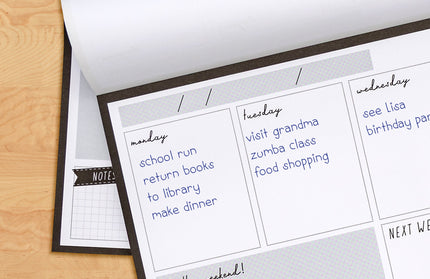 / / /
monday
school run
return books
to library
make dinner
tuesday
visit grandma
zumba class
food shopping
wednesday
see lisa
birthday
NOTES
NEXT
weekend!